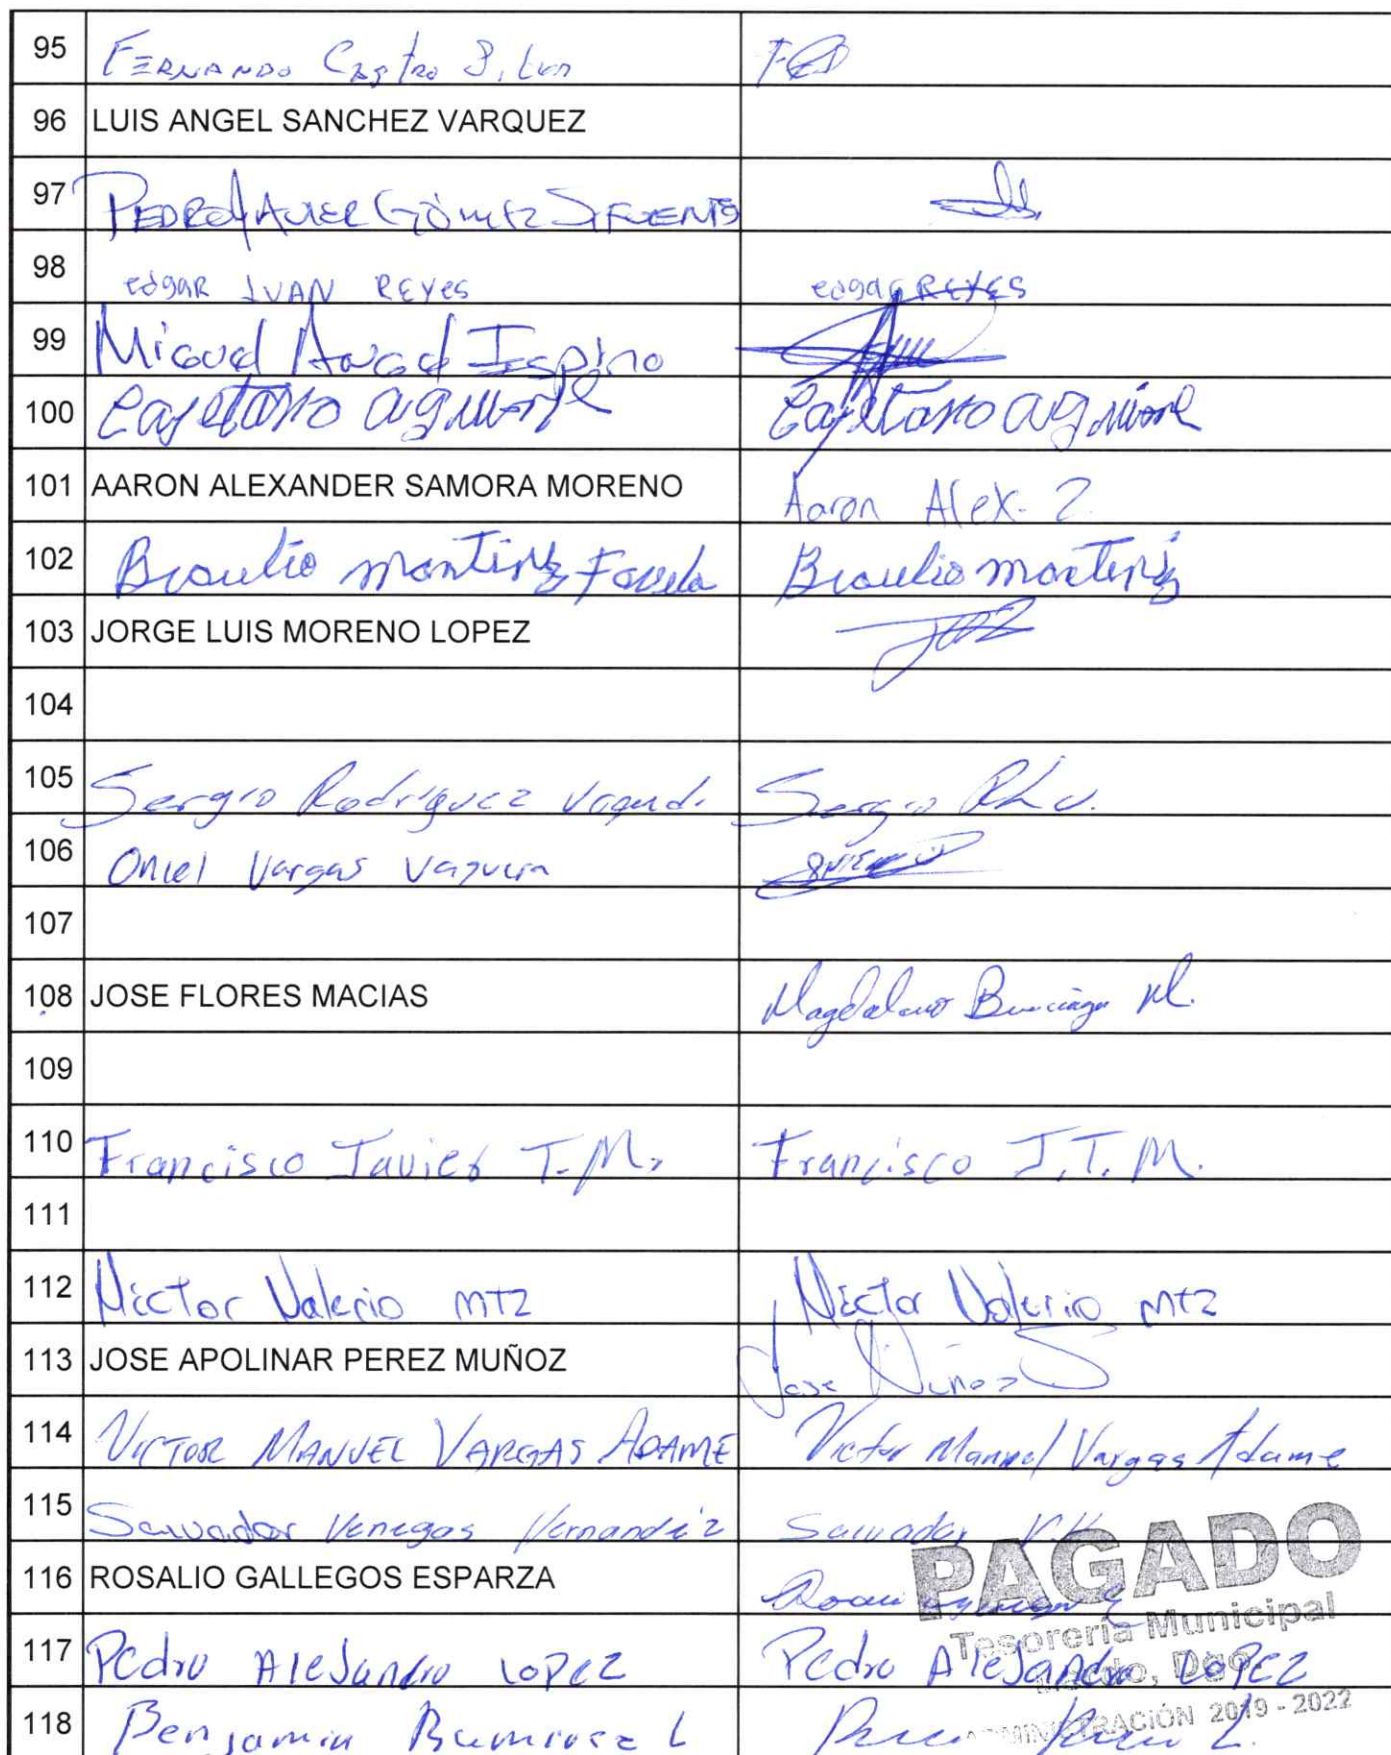 95 FERNANDO Castro Silva FCS
96 LUIS ANGEL SANCHEZ VARQUEZ
97 PEDRO JAVIER GÓMEZ SIFUENTS
98 edgar IVAN REYes edgar REYES
99 Miguel Angel Ispino
100 Cayetano aguirre Cayetano aguirre
101 AARON ALEXANDER SAMORA MORENO Aaron Alex. Z
102 Braulio martinez Favela Braulio martinez
103 JORGE LUIS MORENO LOPEZ
104
105 Sergio Rodriguez Sergio
106 Oniel Vargas Vaquera
107
108 JOSE FLORES MACIAS Magdaleno Burciaga M.
109
110 Francisco Javier T.M. Francisco J.T.M.
111
112 Néctor Valerio mtz Néctor Valerio mtz
113 JOSE APOLINAR PEREZ MUÑOZ Jose
114 VICTOR MANUEL VARGAS ADAME Victor Manuel Vargas Adame
115 Salvador Venegas Hernandez Salvador V.H
116 ROSALIO GALLEGOS ESPARZA
117 Pedro AleJandro LOPez Pedro AleJandro LOPez
118 Benjamin Ramirez L
PAGADO
Tesorería Municipal
Dgo.
ADMINISTRACIÓN 2019 - 2022